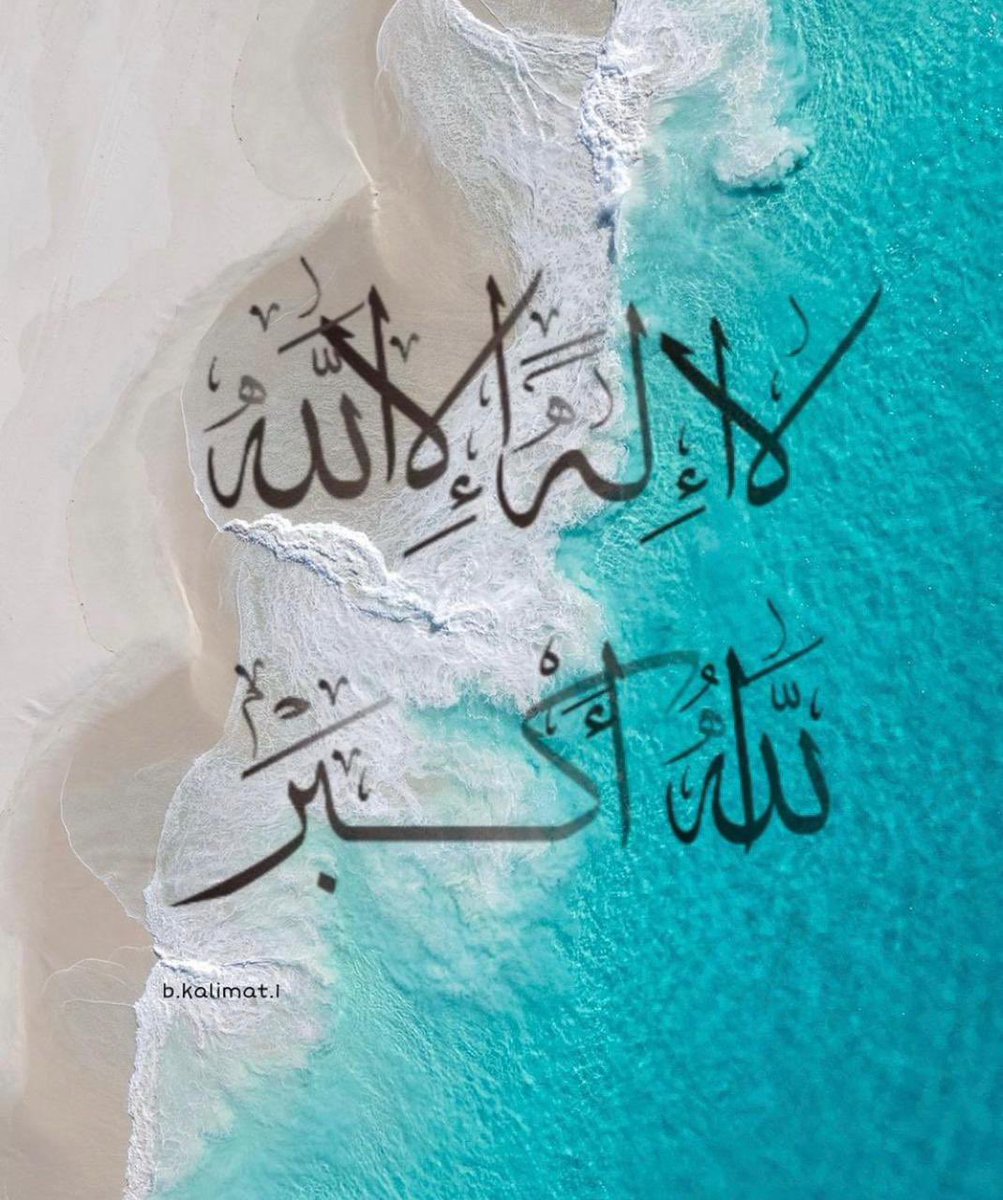 لَا إِلَٰهَ إِلَّا اللَّهُ
اللَّهُ أَكْبَرْ
b.kalimat.I